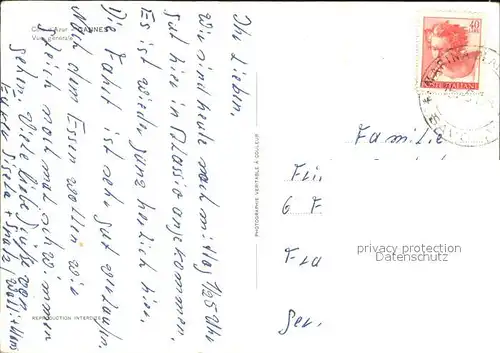 Côte d'Azur - CANNES
Vue générale
Ihr Lieben,
Wir sind heute nachmittag 1/2 5 Uhr
gut hier in Alassio angekommen.
Es ist wieder ganz herlich hier.
Die Fahrt ist sehr gut verlaufen.
Nach dem Essen wollen wir
gleich noch mal schwimmen
gehen. Viele liebe Grüße von
Gisela +
REPRODUCTION INTERDITE
PHOTOGRAPHIE VERITABLE A COULEUR
40
POSTE ITALIANE
MARINA
Familie
F
6 F
Fra
Ger
privacy protection
Datenschutz